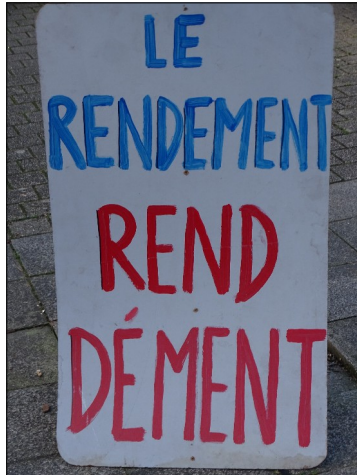 LE
RENDEMENT
REND
DÉMENT